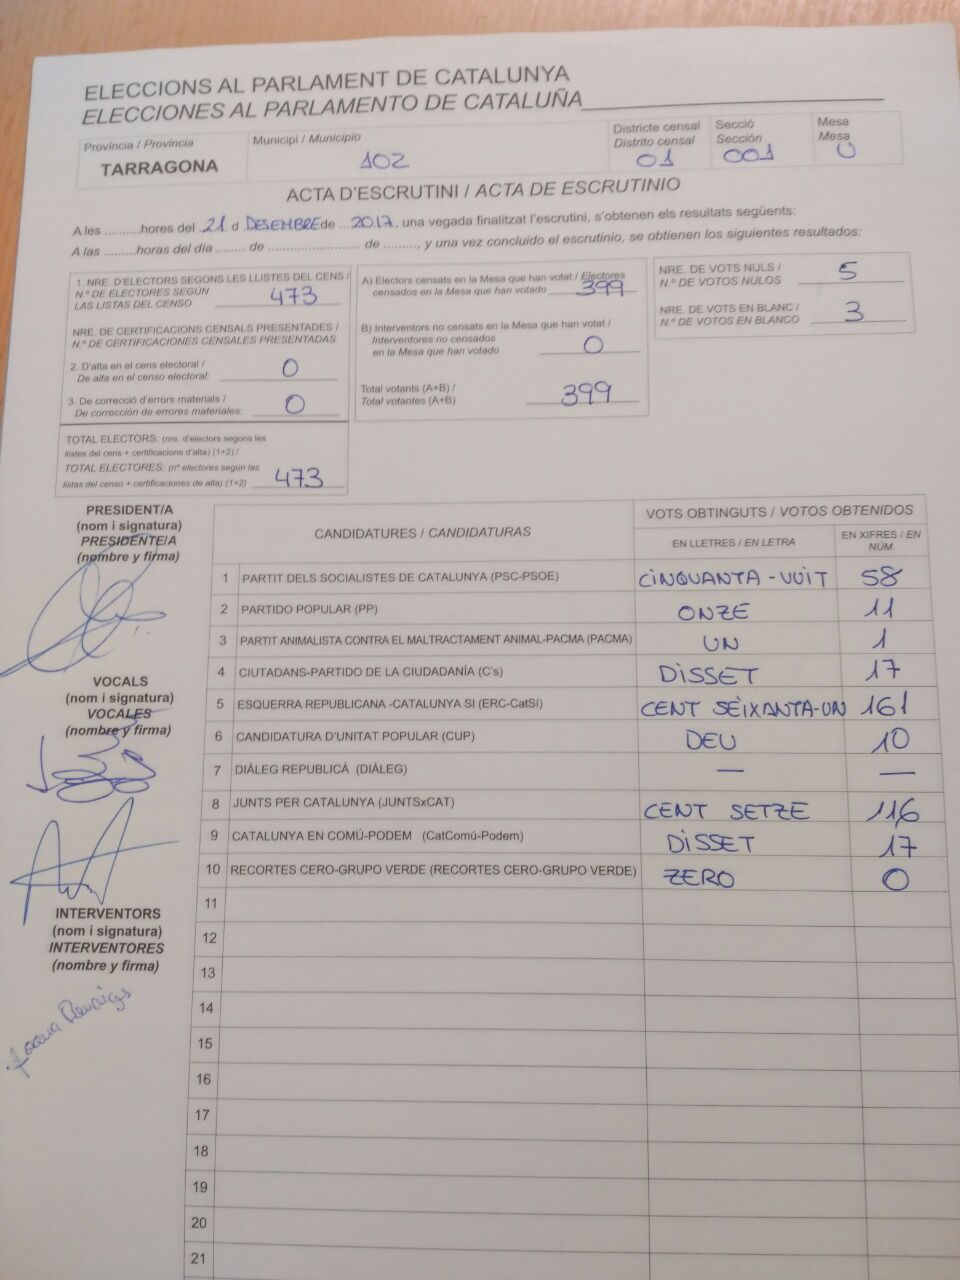 ELECCIONS AL PARLAMENT DE CATALUNYA
ELECCIONES AL PARLAMENTO DE CATALUÑA
Província / Provincia
TARRAGONA
Municipi / Municipio
102
Districte censal
Distrito censal
01
Secció
Sección
001
Mesa
Mesa
U
ACTA D'ESCRUTINI / ACTA DE ESCRUTINIO
A les .........hores del 21 d DESEMBRE de ...2017, una vegada finalitzat l'escrutini, s'obtenen els resultats següents:
A las .........horas del día ........ de ........................ de ........., y una vez concluido el escrutinio, se obtienen los siguientes resultados:
1. NRE. D'ELECTORS SEGONS LES LLISTES DEL CENS /
N.º DE ELECTORES SEGÚN
LAS LISTAS DEL CENSO
473
NRE. DE CERTIFICACIONS CENSALS PRESENTADES /
N.º DE CERTIFICACIONES CENSALES PRESENTADAS
2. D'alta en el cens electoral /
De alta en el censo electoral:
0
3. De correcció d'errors materials /
De corrección de errores materiales:
0
TOTAL ELECTORS: (nre. d'electors segons les
llistes del cens + certificacions d'alta) (1+2) /
TOTAL ELECTORES: (nº electores según las
listas del censo + certificaciones de alta) (1+2)
473
A) Electors censats en la Mesa que han votat / Electores
censados en la Mesa que han votado
399
B) Interventors no censats en la Mesa que han votat /
Interventores no censados
en la Mesa que han votado
0
Total votants (A+B) /
Total votantes (A+B)
399
NRE. DE VOTS NULS /
N.º DE VOTOS NULOS
5
NRE. DE VOTS EN BLANC /
N.º DE VOTOS EN BLANCO
3
PRESIDENT/A
(nom i signatura)
PRESIDENTE/A
(nombre y firma)
VOCALS
(nom i signatura)
VOCALES
(nombre y firma)
INTERVENTORS
(nom i signatura)
INTERVENTORES
(nombre y firma)
CANDIDATURES / CANDIDATURAS
VOTS OBTINGUTS / VOTOS OBTENIDOS
EN LLETRES / EN LETRA
EN XIFRES / EN
NÚM.
1 PARTIT DELS SOCIALISTES DE CATALUNYA (PSC-PSOE) CINQUANTA-VUIT 58
2 PARTIDO POPULAR (PP) ONZE 11
3 PARTIT ANIMALISTA CONTRA EL MALTRACTAMENT ANIMAL-PACMA (PACMA) UN 1
4 CIUTADANS-PARTIDO DE LA CIUDADANÍA (C's) DISSET 17
5 ESQUERRA REPUBLICANA -CATALUNYA SI (ERC-CatSI) CENT SEIXANTA-UN 161
6 CANDIDATURA D'UNITAT POPULAR (CUP) DEU 10
7 DIÀLEG REPUBLICÀ (DIÀLEG) — —
8 JUNTS PER CATALUNYA (JUNTSxCAT) CENT SETZE 116
9 CATALUNYA EN COMÚ-PODEM (CatComú-Podem) DISSET 17
10 RECORTES CERO-GRUPO VERDE (RECORTES CERO-GRUPO VERDE) ZERO 0
11
12
13
14
15
16
17
18
19
20
21